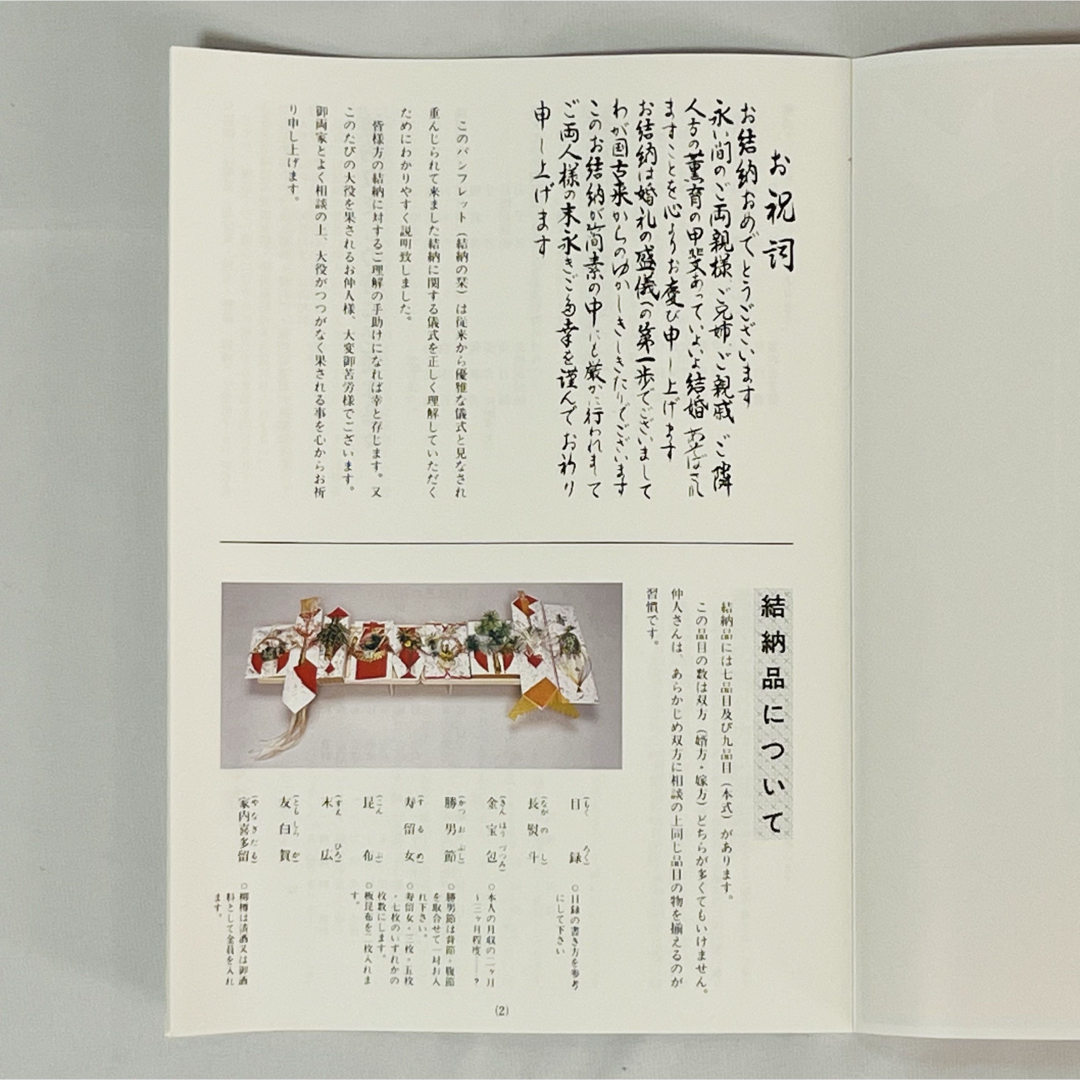 お祝詞
お結納おめでとうございます
永い間のご両親様、ご兄姉、ご親戚、ご隣
人方の薫育の甲斐あっていよいよ結婚あそばされ
ますことを心よりお慶び申し上げます
お結納は婚礼の盛儀の第一歩でございまして
わが国古来からのゆかしきしきたりでございます
このお結納が簡素の中にも厳かに行われまして
ご両人様の末永きご多幸を謹んでお祈り
申し上げます
このパンフレット（結納の栞）は従来から優雅な儀式と見なされ
重んじられて来ました結納に関する儀式を正しく理解していただく
ためにわかりやすく説明致しました。
皆様方の結納に対するご理解の手助けになれば幸と存じます。又
このたびの大役を果されるお仲人様、大変御苦労様でございます。
御両家とよく相談の上、大役がつつがなく果される事を心からお祈
り申し上げます。
結納品について
結納品には七品目及び九品目（本式）があります。
この品目の数は双方（婿方・嫁方）どちらが多くてもいけません。
仲人さんは、あらかじめ双方に相談の上同じ品目の物を揃えるのが
習慣です。
目録（もくろく）
○目録の書き方を参考
にして下さい
長熨斗（ながのし）
金宝包（きんほうづつみ）
○本人の月収の二ヶ月
〜三ヶ月程度……?
勝男節（かつおぶし）
○勝男節は背節・腹節
を取合せて一対お入
れ下さい。
寿留女（するめ）
○寿留女・三枚・五枚
・七枚のいずれかの
枚数にします。
昆布（こんぶ）
○板昆布を二枚入れま
す。
末広（すえひろ）
友白賀（ともしらが）
家内喜多留（やなぎだる）
○柳樽は清酒又は御酒
料として金員を入れ
ます。
(2)